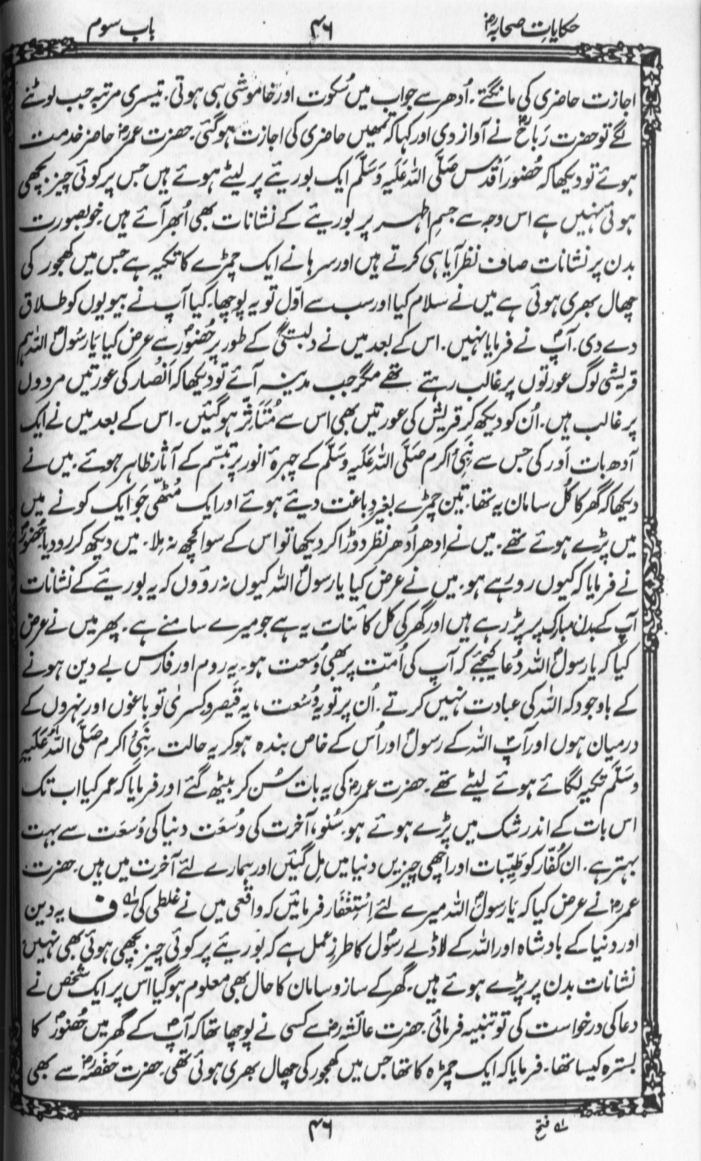 حکایاتِ صحابہؓ ۴۶ باب سوم
اجازت حاضری کی مانگتے۔ اُدھر سے جواب میں سُکوت اور خاموشی ہی ہوتی۔ تیسری مرتبہ جب لوٹنے
لگے تو حضرت رَباحؓ نے آواز دی اور کہا کہ تمھیں حاضری کی اجازت ہوگئی۔ حضرت عمرؓ حاضر خدمت
ہوئے تو دیکھا کہ حُضورِ اَقدس صَلَّی اللہُ عَلَیہِ وَسَلَّم ایک بوریئے پر لیٹے ہوئے ہیں جس پر کوئی چیز بچھی
ہوئی نہیں ہے اس وجہ سے جسمِ اطہر پر بوریئے کے نشانات بھی اُبھر آئے ہیں۔ خوبصورت
بدن پر نشانات صاف نظر آیا ہی کرتے ہیں اور سرہانے ایک چمڑے کا تکیہ ہے جس میں کھجور کی
چھال بھری ہوئی ہے میں نے سلام کیا اور سب سے اوّل تو یہ پوچھا۔ کیا آپ نے بیویوں کو طلاق
دے دی۔ آپؐ نے فرمایا نہیں۔ اس کے بعد میں نے دلبستگی کے طور پر حُضورؐ سے عرض کیا یا رسولُ اللہ ہم
قریشی لوگ عورتوں پر غالب رہتے تھے مگر جب مدینہ آئے تو دیکھا کہ اَنصار کی عورتیں مردوں
پر غالب ہیں۔ اُن کو دیکھ کر قریش کی عورتیں بھی اس سے مُتَأثِّر ہوگئیں۔ اس کے بعد میں نے ایک
آدھ بات اَور کی جس سے نبیِّ اکرم صَلَّی اللہُ عَلَیہِ وَسَلَّم کے چہرۂ انور پر تبسّم کے آثار ظاہر ہوئے۔ میں نے
دیکھا کہ گھر کا کُل سامان یہ تھا۔ تین چمڑے بغیر دِباغت دیئے ہوئے اور ایک مُٹھّی جَو ایک کونے میں
میں پڑے ہوئے تھے۔ میں نے اِدھر اُدھر نظر دوڑا کر دیکھا تو اس کے سوا کچھ نہ ملا۔ میں دیکھ کر رو دیا حُضورؐ
نے فرمایا کہ کیوں رو رہے ہو۔ میں نے عرض کیا یا رسولؐ اللہ کیوں نہ روؤں کہ یہ بوریئے کے نشانات
آپ کے بدن مبارک پر پڑ رہے ہیں اور گھر کی کل کائنات یہ ہے جو میرے سامنے ہے۔ پھر میں نے عرض
کیا کہ یا رسولؐ اللہ دُعا کیجئے کہ آپ کی اُمّت پر بھی وُسعت ہو۔ یہ روم اور فارس بے دین ہونے
کے باوجود کہ اللہ کی عبادت نہیں کرتے۔ اُن پر تو یہ وُسعَت، یہ قیصر و کسریٰ تو باغوں اور نہروں کے
درمیان ہوں اور آپؐ اللہ کے رسولؐ اور اُس کے خاص بندہ ہو کر یہ حالت۔ نبیِّ اکرم صَلَّی اللہُ عَلَیہِ
وَسَلَّم تکیہ لگائے ہوئے لیٹے تھے۔ حضرت عمرؓ کی یہ بات سُن کر بیٹھ گئے اور فرمایا کہ عمر کیا اب تک
اس بات کے اندر شک میں پڑے ہوئے ہو۔ سُنو، آخرت کی وُسعَت دنیا کی وُسعَت سے بہت
بہتر ہے۔ ان کُفّار کو طیِّبات اور اچھی چیزیں دنیا میں مِل گئیں اور ہمارے لئے آخرت میں ہیں۔ حضرت
عمرؓ نے عرض کیا کہ یا رسولؐ اللہ میرے لئے اِستِغفَار فرمائیں کہ واقعی میں نے غلطی کی لہ ف یہ دین
اور دنیا کے بادشاہ اور اللہ کے لاڈلے رسولؐ کا طرزِ عمل ہے کہ بوریئے پر کوئی چیز بچھی ہوئی بھی نہیں
نشانات بدن پر پڑے ہوئے ہیں۔ گھر کے ساز و سامان کا حال بھی معلوم ہوگیا اس پر ایک شخص نے
دعا کی درخواست کی تو تنبیہ فرمائی۔ حضرت عائشہؓ سے کسی نے پوچھا تھا کہ آپؐ کے گھر میں حُضورؐ کا
بسترہ کیسا تھا۔ فرمایا کہ ایک چمڑہ کا تھا جس میں کھجور کی چھال بھری ہوئی تھی۔ حضرت حَفصہؓ سے بھی
لہ فتح ۴۶